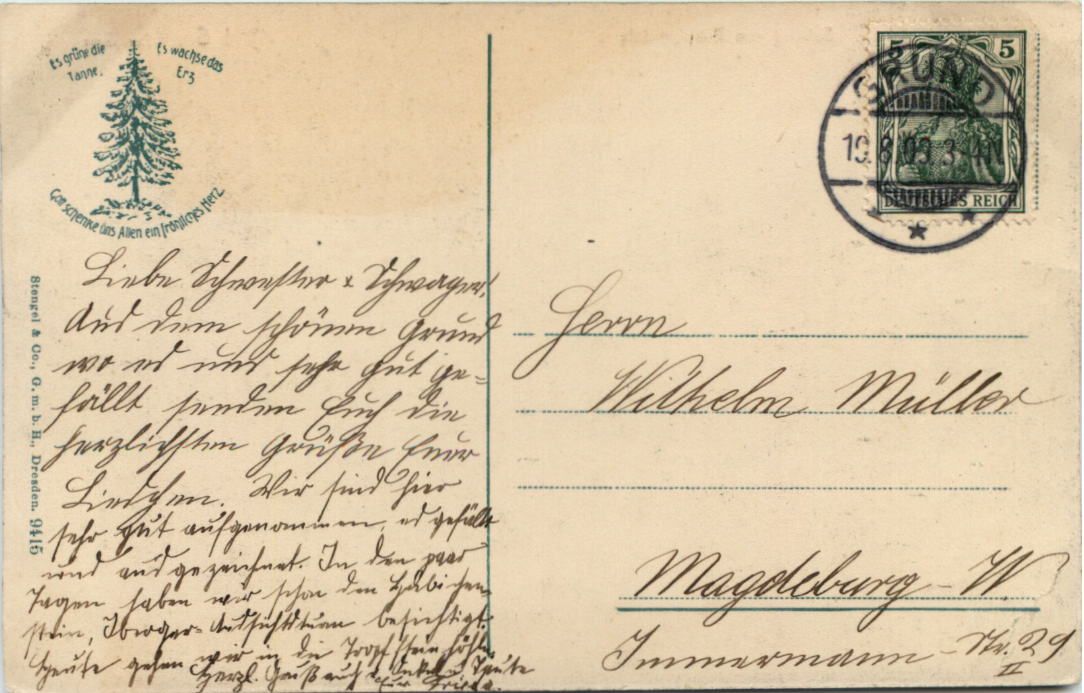 Es grüne die
Tanne,
Es wachse das
Erz
Gott schenke uns Allen ein fröhliches Herz
Stengel & Co., G. m. b. H., Dresden. 9415
5 5
DEUTSCHES REICH
GRUND
19.8.
Liebe Schwester & Schwager!
Aus dem schönen Grund
wo es uns sehr gut ge=
fällt senden Euch die
herzlichsten Grüße Euer
Lieschen. Wir sind hier
sehr gut aufgenommen, es gefällt
uns ausgezeichnet. In den paar
Tagen haben wir schon den Hübichen
stein, Iberger= Aussichtsturm besichtigt.
Heute gehen wir in die Tropfsteinhöhle.
Herzl. Gruß auch Onkel u. Tante
Herrn
Wilhelm Müller
Magdeburg-W
Immermann-Str. 29
II